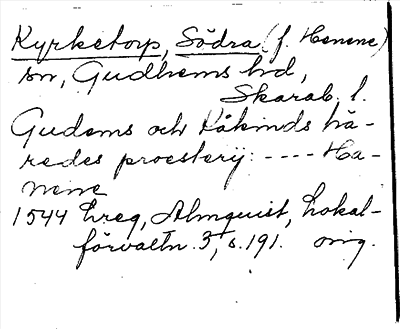 Kyrketorp, Södra (f. Henene)
sn, Gudhems hd,
Skarab. l.
Gudems och Kåkinds hä-
redes proesterij: ---- Ha-
nene
1544 Lreg, Almquist, Lokal-
förvaltn. 3, s. 191. orig.